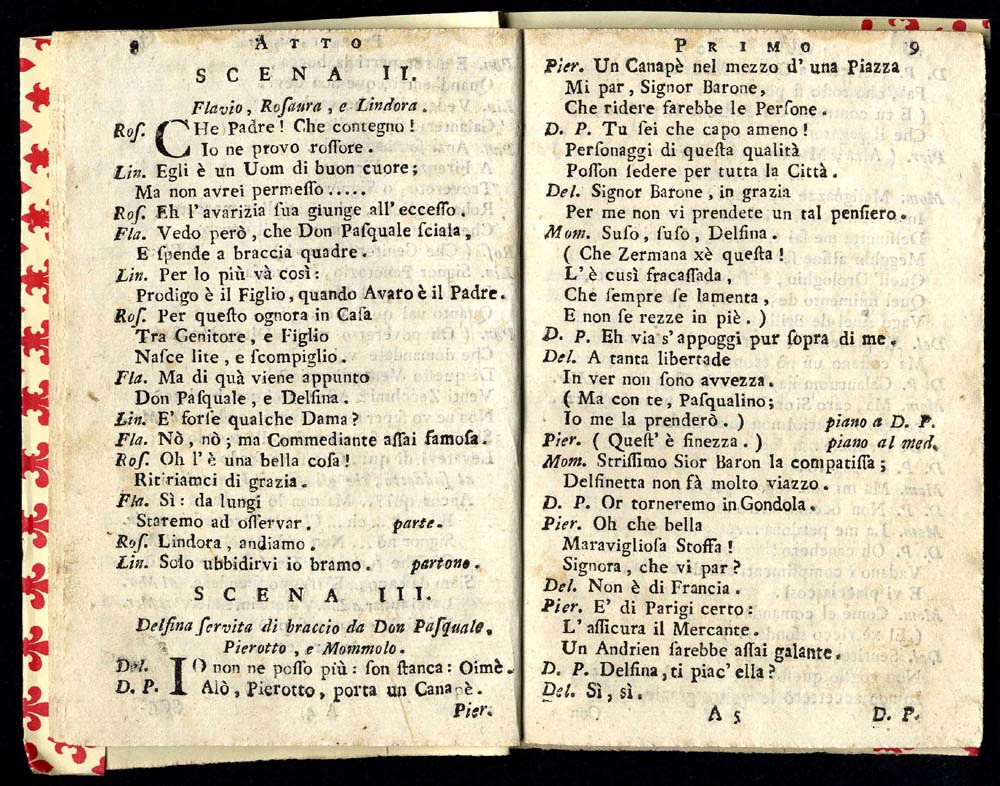 8 ATTO
SCENA II.
Flavio, Roſaura, e Lindora.
Roſ. CHe Padre! Che contegno!
Io ne provo roſſore.
Lin. Egli è un Uom di buon cuore;
Ma non avrei permeſſo.....
Roſ. Eh l'avarizia ſua giunge all'ecceſſo.
Fla. Vedo però, che Don Paſquale ſciala,
E ſpende a braccia quadre.
Lin. Per lo più và così:
Prodigo è il Figlio, quando Avaro è il Padre.
Roſ. Per queſto ognora in Caſa
Tra Genitore, e Figlio
Naſce lite, e ſcompiglio.
Fla. Ma di quà viene appunto
Don Paſquale, e Delfina.
Lin. E' forſe qualche Dama?
Fla. Nò, nò; ma Commediante aſſai famoſa.
Roſ. Oh l'è una bella coſa!
Ritiriamci di grazia.
Fla. Sì: da lungi
Staremo ad oſſervar. parte.
Roſ. Lindora, andiamo.
Lin. Solo ubbidirvi io bramo. partono.
SCENA III.
Delfina ſervita di braccio da Don Paſquale,
Pierotto, e Mommolo.
Del. IO non ne poſſo più: ſon ſtanca: Oimè.
D. P. Alò, Pierotto, porta un Canapè.
Pier.
PRIMO 9
Pier. Un Canapè nel mezzo d'una Piazza
Mi par, Signor Barone,
Che ridere farebbe le Perſone.
D. P. Tu ſei che capo ameno!
Perſonaggi di queſta qualità
Poſſon ſedere per tutta la Città.
Del. Signor Barone, in grazia
Per me non vi prendete un tal penſiero.
Mom. Suſo, ſuſo, Delfina.
( Che Zermana xè queſta!
L'è cusì fracaſſada,
Che ſempre ſe lamenta,
E non ſe rezze in piè. )
D. P. Eh via s'appoggi pur ſopra di me.
Del. A tanta libertade
In ver non ſono avvezza.
( Ma con te, Paſqualino;
Io me la prenderò. ) piano a D. P.
Pier. ( Queſt' è finezza. ) piano al med.
Mom. Striſſimo Sior Baron la compatiſſa;
Delfinetta non fà molto viazzo.
D. P. Or torneremo in Gondola.
Pier. Oh che bella
Maraviglioſa Stoffa!
Signora, che vi par?
Del. Non è di Francia.
Pier. E' di Parigi certo:
L'aſſicura il Mercante.
Un Andrien ſarebbe aſſai galante.
D. P. Delfina, ti piac' ella?
Del. Sì, sì.
A 5 D. P.